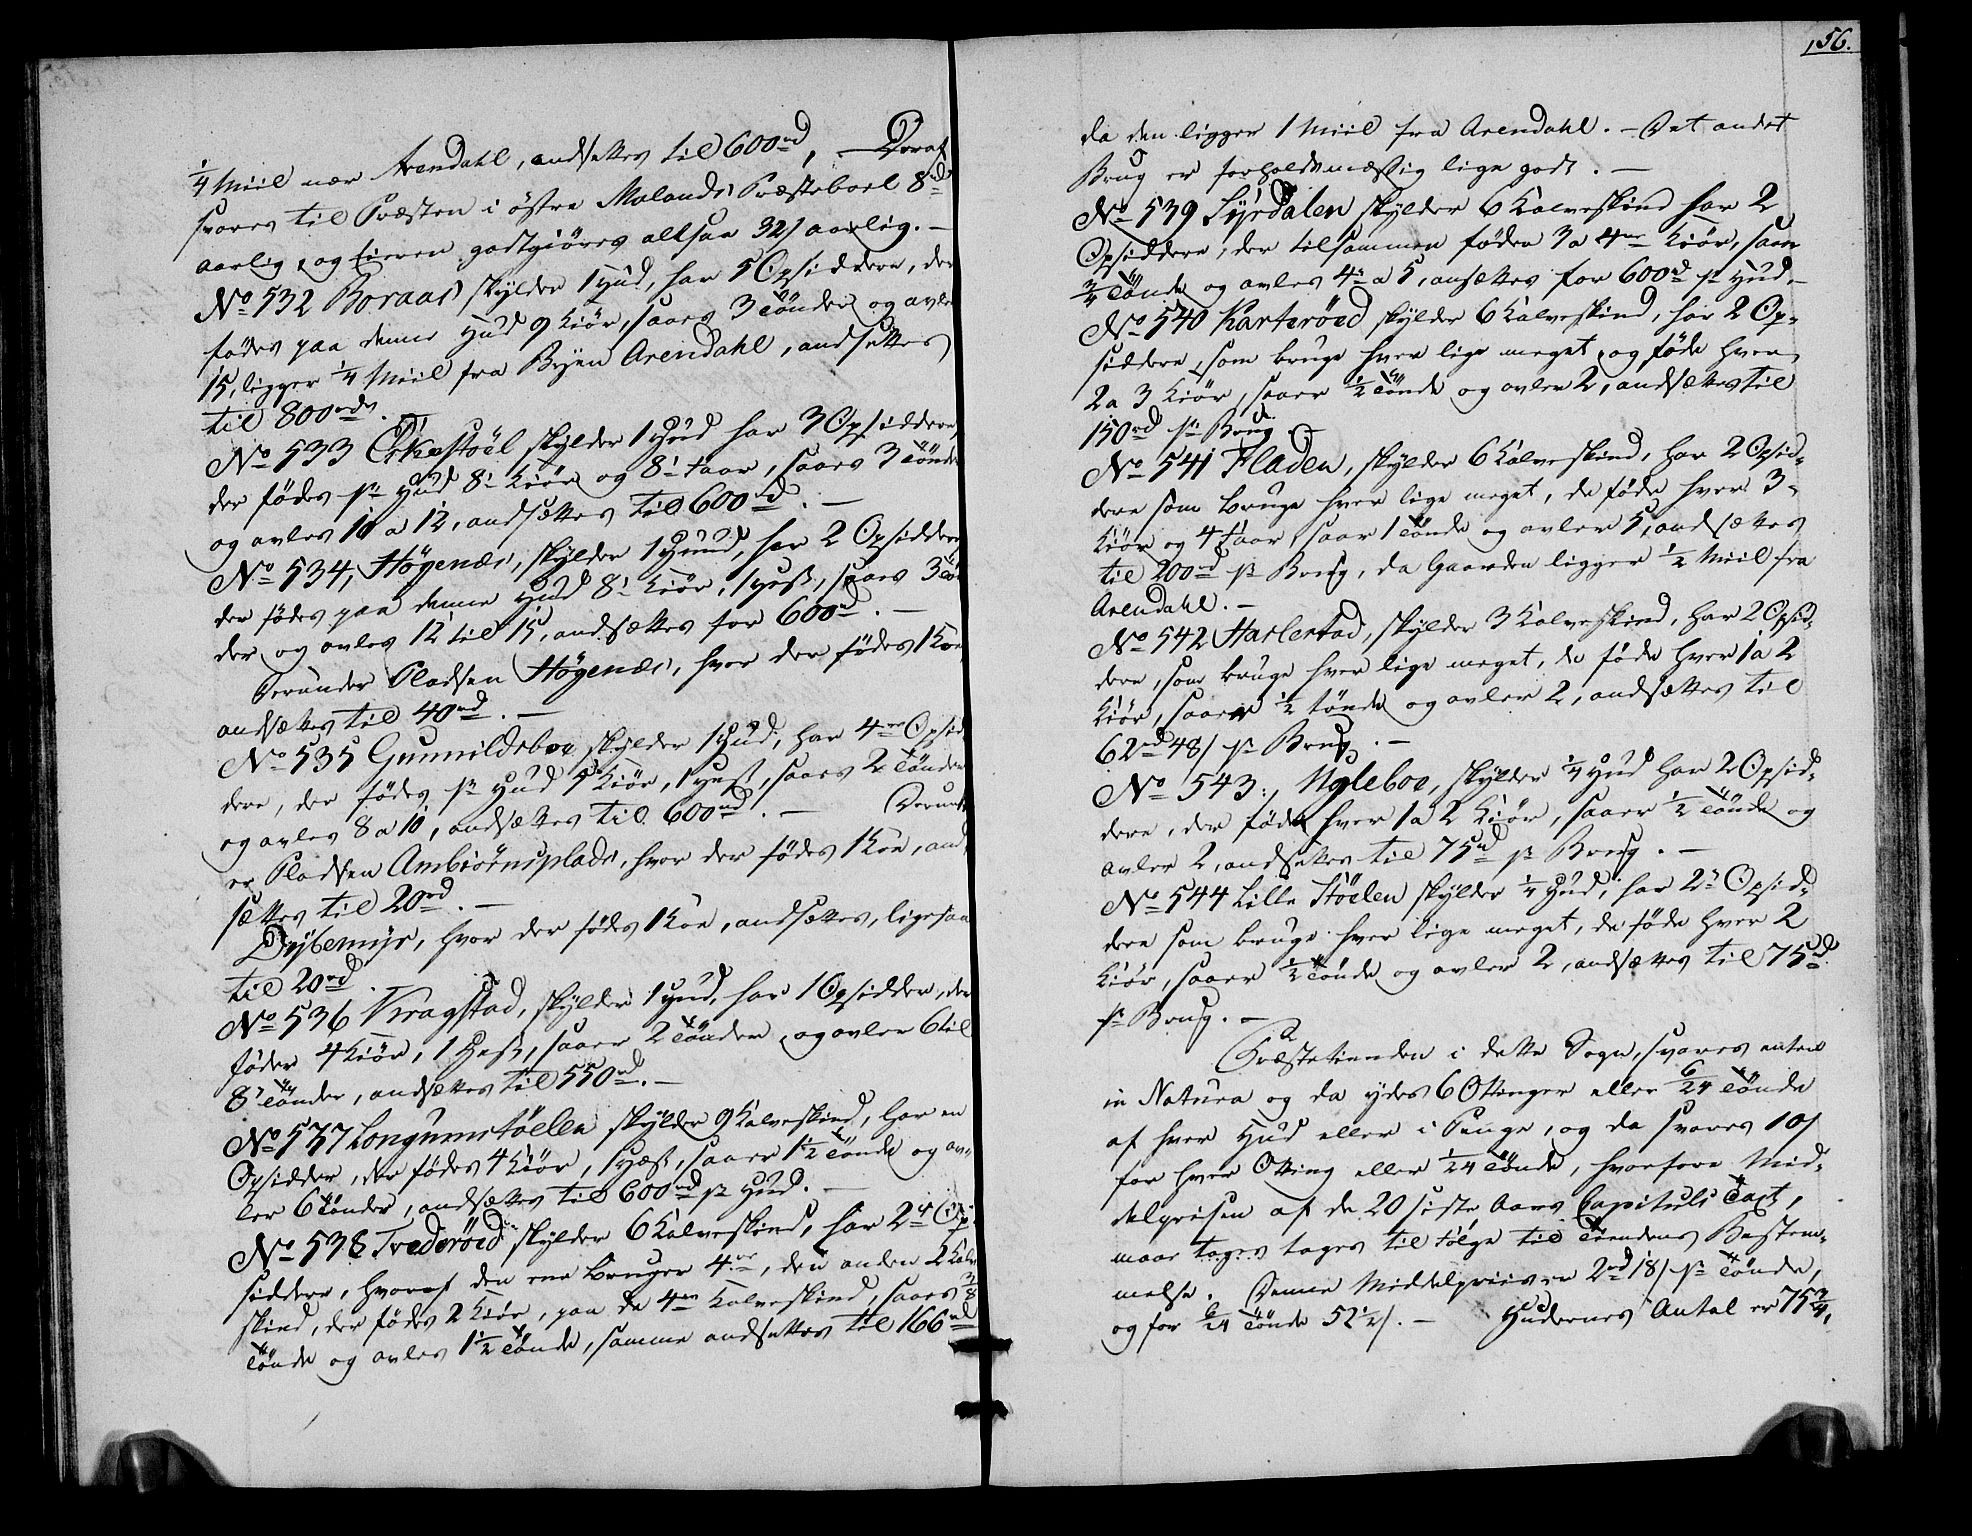 ¼ Miil nær Arendahl, andsættes til 600rd, — Deraf
svares til Præsten i östre Molands Præsteboel 8rd
aarlig, og Eieren godtgiöres altsaa 32/ aarlig. —
No 532 Boraas skylder 1 Hud, har 5 Opsiddere, der
födes paa denne Hud 9 Kiör, saaes 3 Tönder og avles
15, ligger ¼ Miil fra Byen Arendahl, andsættes
til 800rd.
No 533 Eskestöel skylder 1 Hud har 3 Opsiddere,
der födes pr Hud 8 Kiör og 8 Faar, saaes 3 Tönder
og avles 10 a 12, andsættes til 600rd. —
No 534, Högenæs, skylder 1 Hud, har 2 Opsiddere
der födes paa denne Hud 8 Kiör, 1 Hest, saaes 3 Tön
der og avles 12 til 15, andsættes for 600rd. —
Derunder Pladsen Högenæs, hvor der födes 1 Koe,
andsættes til 40rd. —
No 535 Gunnildsboe skylder 1 Hud, har 4re Opsid
dere, der födes pr Hud 5 Kiör, 1 Hest, saaes 2 Tönder
og avles 8 a 10, andsættes til 600rd. — Derunder
er Pladsen Ambiörnsplads, hvor der födes 1 Koe, and
sættes til 20rd. —
Dybemyr, hvor der födes 1 Koe, andsættes, ligesaa
til 20rd.
No 536 Kragstad, skylder 1 Hud, har 1 Opsidder, der
föder 4 Kiör, 1 Hest, saaer 2 Tönder, og avler 6 til
8 Tönder, andsættes til 550rd. —
No 537 Longumstöelen skylder 9 Kalveskind, har en
Opsidder, der födes 4 Kiör, 1 Hest, saaer 1½ Tönde og av-
ler 6 Tönder, andsættes til 600rd pr Hud. —
No 538 Tvederöed skylder 6 Kalveskind, har 2 Op
siddere, hvoraf den ene bruger 4re, den anden 2 Kalve
skind, der födes 2 Kiör, paa de 4re Kalveskind, saaes ⅜
Tönde og avles 1½ Tönde, samme andsættes til 166rd
156.
da den ligger 1 Miil fra Arendahl. — Det andet
Brug er forholdsmæssig lige godt. —
No 539 Lyrdalen skylder 6 Kalveskind har 2
Opsiddere, der tilsammen föder 3 a 4re Kiör, saaer
¾ Tönde og avles 4 a 5, ansættes for 600rd pr Hud. —
No 540 Karteröed skylder 6 Kalveskind, har 2 Op-
siddere, som bruge hver lige meget, og föde hver
2 a 3 Kiör, saaer ½ Tönde og avler 2, andsættes til
150rd pr Brug. —
No 541 Fladen, skylder 6 Kalveskind, har 2 Opsid-
dere som bruge hver lige meget, de föde hver 3
Kiör og 4 Faar, saaer 1 Tönde og avler 5, andsættes
til 200rd pr Brug, da Gaarden ligger ½ Miil fra
Arendahl. —
No 542 Harlestad, skylder 3 Kalveskind, har 2 Opsid-
dere, som bruge hver lige meget, de föde hver 1 a 2
Kiör, saaer ½ tönde og avler 2, andsættes til
62rd 48/ pr Brug. —
No 543, Ugleboe, skylder ¼ Hud har 2 Opsid-
dere, der föde hver 1 a 2 Kiör, saaer ½ Tönde og
avler 2, andsættes til 75rd pr Brug. —
No 544 Lille Stöelen skylder ¼ Hud, har 2 Opsid-
dere som bruge hver lige meget, de föde hver 2
Kiör, saaer ½ Tönde og avler 2, andsættes til 75rd
pr Brug. —
Præstetienden i dette Sogn, svares enten
in Natura og da ydes 6 Ottinger eller 6/24 Tönde
af hver Hud eller i Penge, og da svares 10/
for hver Otting eller 1/24 Tönde, hvorfore Mid-
delprisen af de 20 sidste Aars Capituls Taxt,
maae tages tages til fölge til Tiendens Bestem-
melse. Denne Middelpriis er 2rd 18/ pr Tönde,
og for 6/24 Tönde 52½/. — Hudernes Antal er 75¾,